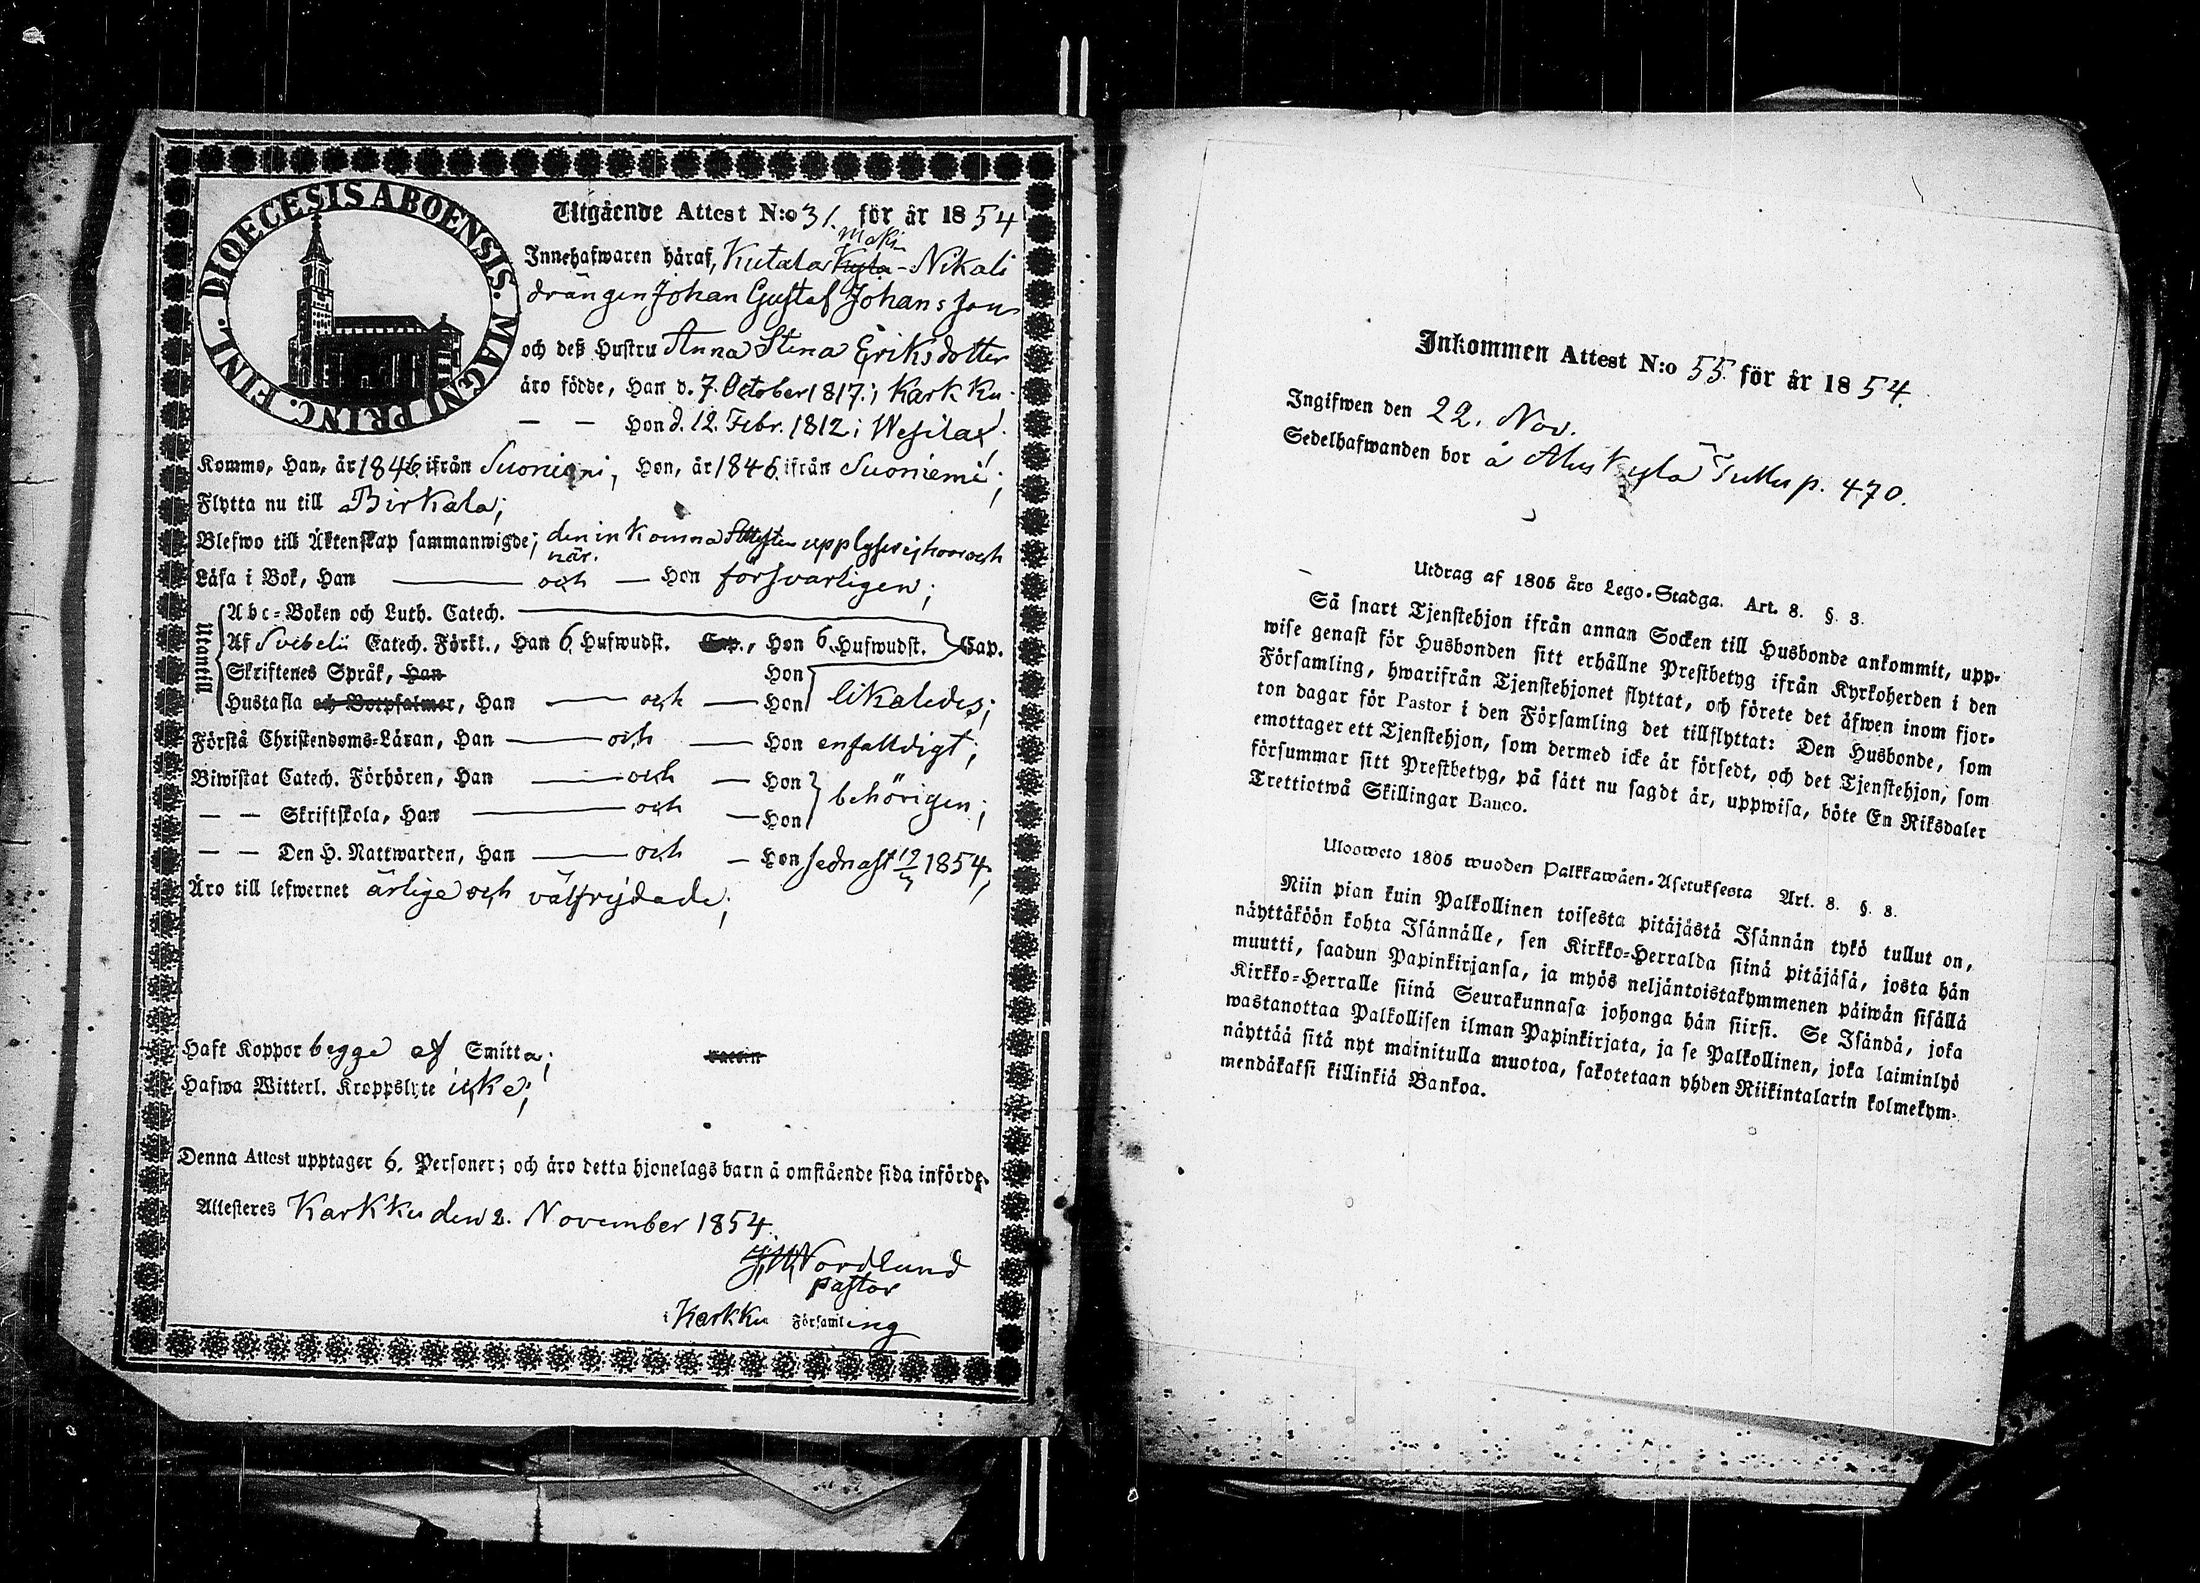 DIOECESIS ABOENSIS. MAGNI PRINC. FINL.
Utgående Attest N:o 31. för år 1854
Mäki
Innehafwaren häraf, Kutala Kylä - Nikali
drängen Johan Gustaf Johansson
och deß Hustru Anna Stina Eriksdotter
äro födde, Han d. 7. October 1817. i Karkku.
— — Hon d. 12. Febr. 1812 i Wesilax.
Kommo, Han, år 1846 ifrån Suoniemi, Hon, år 1846. ifrån Suoniemi;
Flytta nu till Birkala;
Blefwo till Äktenskap sammanwigde; den inkomna Attesten upplyser ej hvar och
när.
Läsa i Bok, Han — och — Hon försvarligen;
Utantill
Abc-Boken och Luth. Catech.
Af Svebelii Catech. Förkl., Han 6 Hufwudst. Cap., Hon 6. Hufwudst. Cap.
Skriftenes Språk, Han Hon
Hustafla och Botpsalmer, Han — och — Hon likaledes;
Förstå Christendoms-Läran, Han — och — Hon enfalldigt;
Biwistat Catech. Förhören, Han — och — Hon
— — Skriftskola, Han — och — Hon behörigen;
— — Den H. Nattwarden, Han — och — Hon sednast 1854;
Äro till lefwernet ärlige och välfrejdade;
Haft Koppor begge af Smitta;
Hafwa Witterl. Kroppslyte icke;
Denna Attest upptager 6. Personer; och äro detta hjonelags barn å omstående sida införde.
Attesteres Karkku den 2. November 1854.
Nordlund
pastor
i Karkku Församling
Inkommen Attest N:o 55. för år 1854.
Ingifwen den 22. Nov.
Sedelhafwanden bor å Aluskylä p. 470.
Utdrag af 1805 års Lego-Stadga. Art. 8. §. 3.
Så snart Tjenstehjon ifrån annan Socken till Husbonde ankommit, upp-
wise genast för Husbonden sitt erhållne Prestbetyg ifrån Kyrkoherden i den
Församling, hwarifrån Tjenstehjonet flyttat, och förete det äfwen inom fjor-
ton dagar för Pastor i den Församling det tillflyttat: Den Husbonde, som
emottager ett Tjenstehjon, som dermed icke är försedt, och det Tjenstehjon, som
försummar sitt Prestbetyg, på sätt nu sagdt är, uppwisa, böte En Riksdaler
Trettiotwå Skillingar Banco.
Uloosweto 1805 wuoden Palkkawäen-Asetuksesta Art. 8. §. 3.
Niin pian kuin Palkollinen toisesta pitäjästä Isännän tykö tullut on,
näyttäköön kohta Isännälle, sen Kirkko-Herralda siinä pitäjäsä, josta hän
muutti, saadun Papinkirjansa, ja myös neljäntoistakymmenen päiwän sisällä
Kirkko-Herralle siinä Seurakunnasa johonga hän siirsi. Se Isändä, joka
wastanottaa Palkollisen ilman Papinkirjata, ja se Palkollinen, joka laiminlyö
näyttää sitä nyt mainitulla muotoa, sakotetaan yhden Riikintalarin kolmekym-
mendäkaksi killinkiä Bankoa.